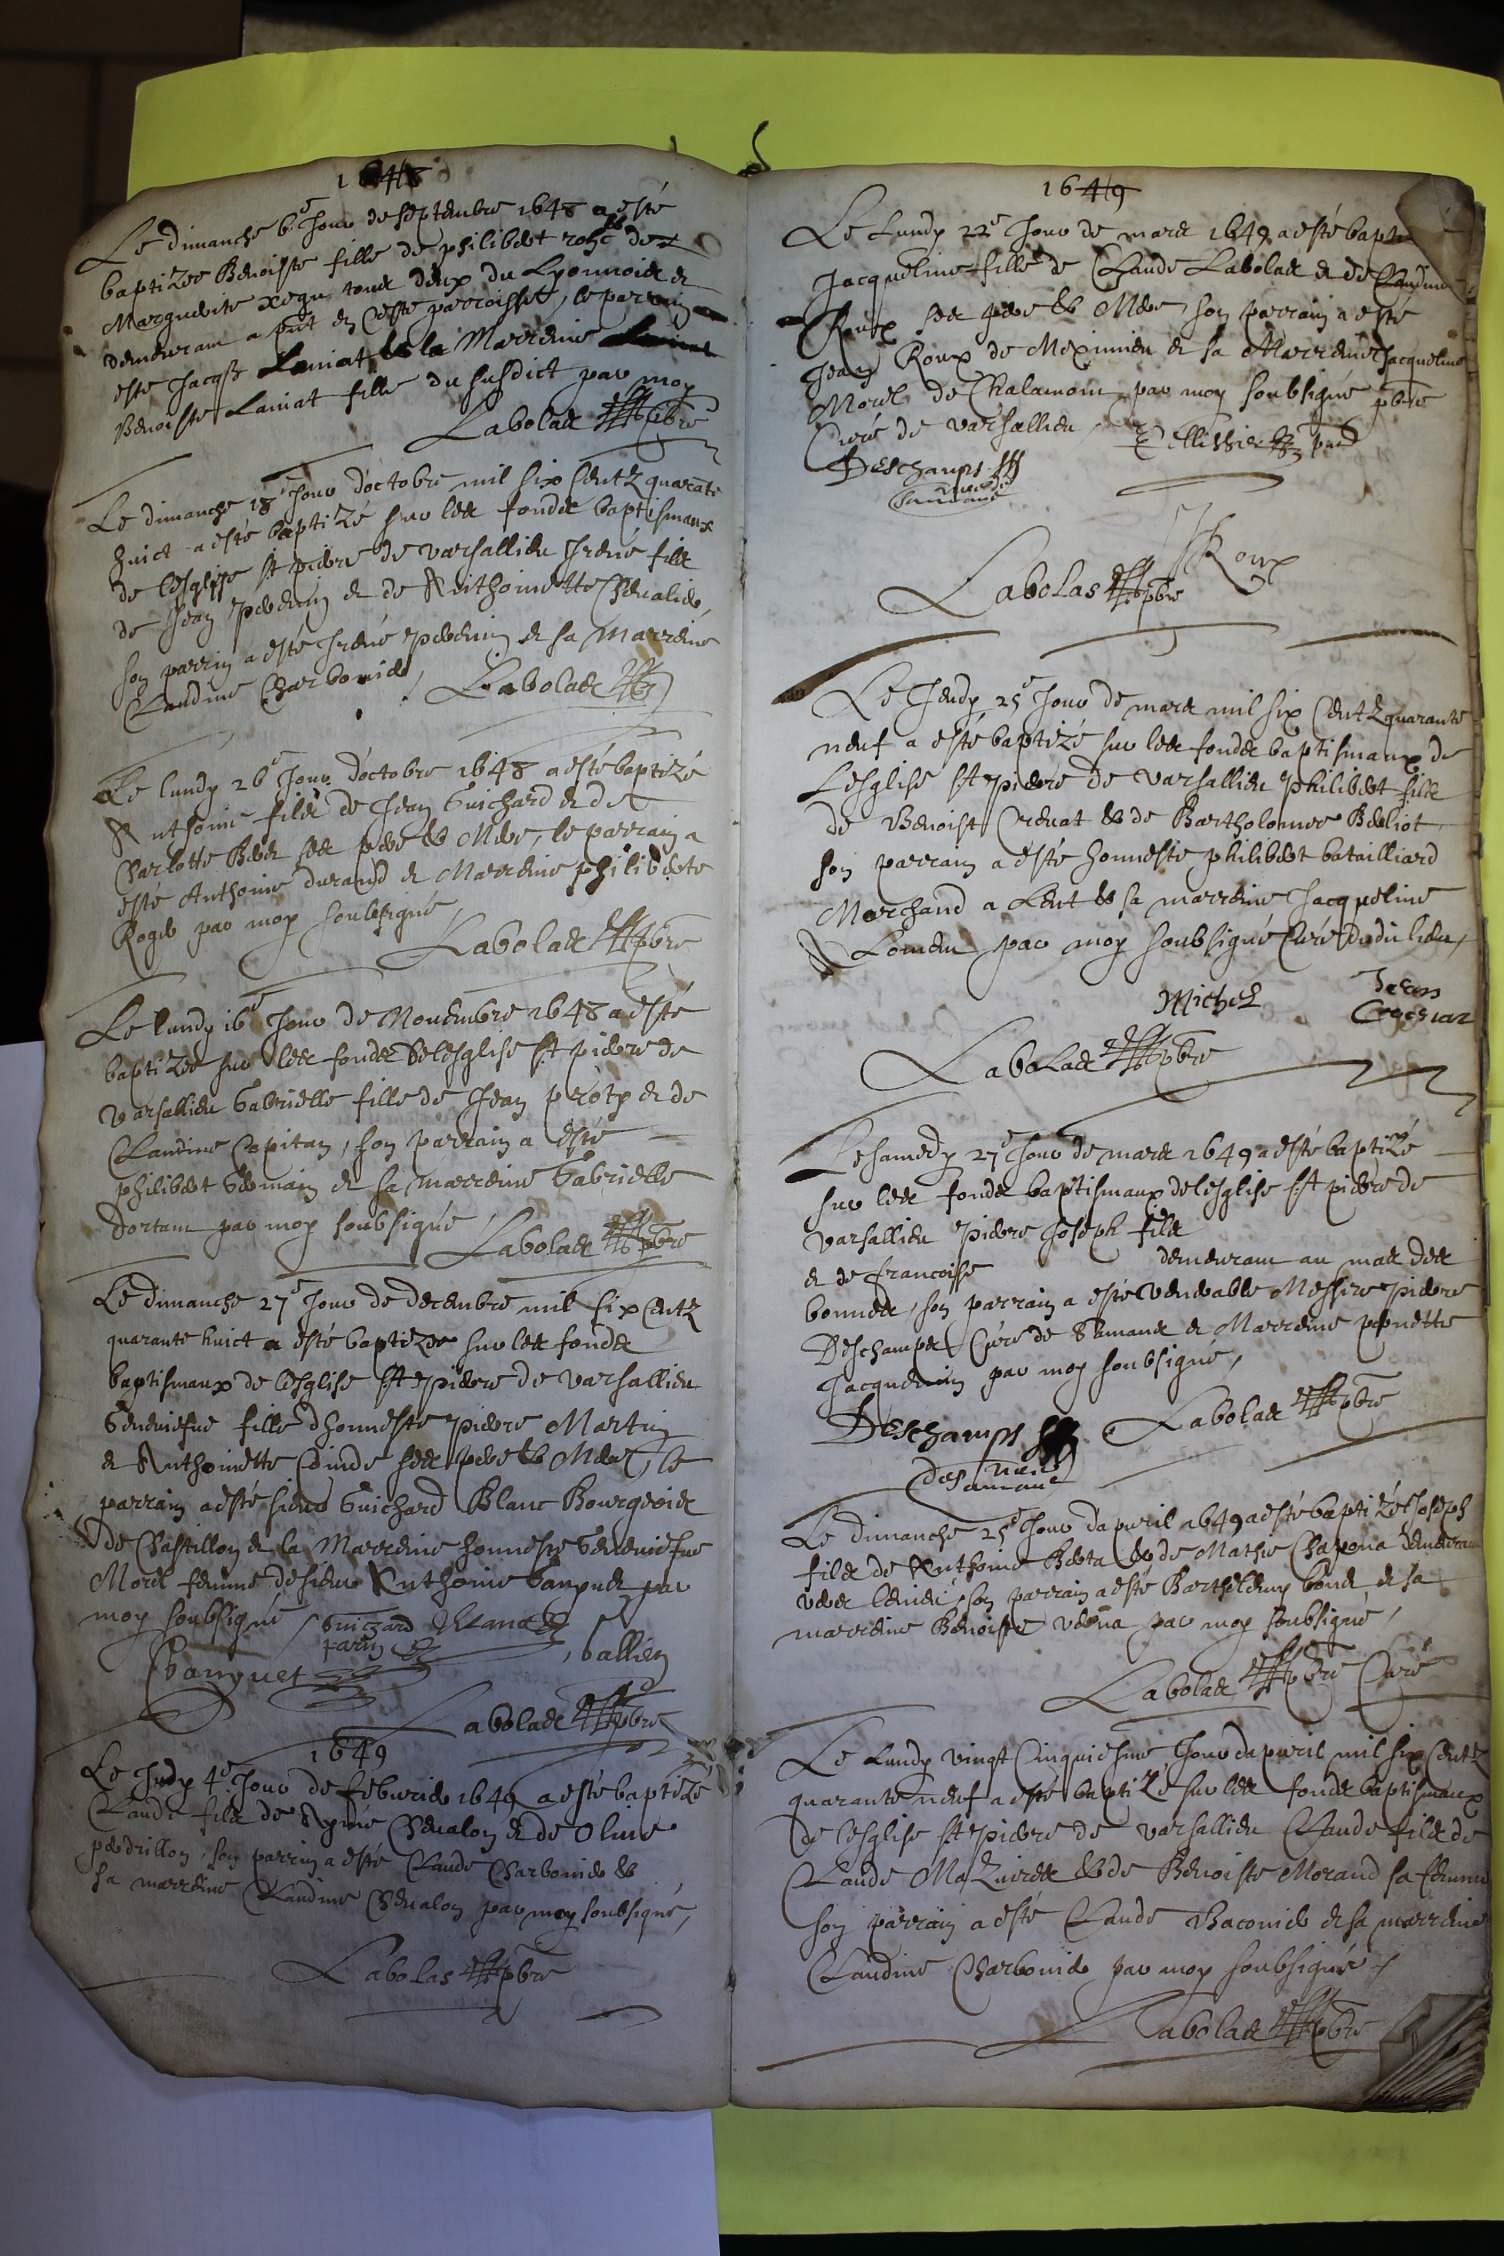 1648
Le dimanche 6e Jour de septembre 1648 a esté
baptizee Benoiste fille de philibert rohe de
Marguerite xegu tous deux du Lyonnois et
demeurant a pnt en ceste parroisse, le parrain a
este Jacqs Laniat & la Marreine
Benoiste Laniat fille du susdict par moy
Labolas pbre
Le dimanche 18e Jour d'octobre mil six Centz quarate
huict a esté baptizé sur les fondz baptismaux
de Lesglise St pierre de varsallieu Irené filz
de Jean peverin et de Anthoinette Chevalier,
son parrin a esté Irené peverin et sa Marreine
Claudine Charbonier, Labolas
Le lundy 26e Jour d'octobre 1648 a esté baptizé
Anthoine filz de Jean Guichard et de
Charlotte Bever ses pere & Mere, le parrain a
esté Anthoine durand et Marreine philiberte
Roger par moy soubsigné,
Labolas pbre
Le lundy 16e Jour de Novembre 1648 a esté
baptizee sur les fondz de lesglise St pierre de
varsallieu Gabrielle fille de Jean proty et de
Claudine Capitan, son parrain a esté
philibert Germain et sa marreine Gabrielle
dortam par moy soubsigné, Labolas pbre
Le dimanche 27e Jour de decembre mil six Centz
quarante huict a esté baptizee sur les fondz
baptismaux de lesglise St pierre de varsallieu
Geneviefve fille d'honneste pierre Martin
et Anthoinette Coinde ses pere & Mere, le
parrain a esté sieur Guichard Blanc Bourgeois
de Chastillon et la Marreine honneste Geneviefve
Morel femme de sieur Anthoine Vanguet par
moy soubsigné, Guichard Blanc
parin
Vanguet, vallien
Labolas pbre
1649
Le Judy 4e Jour de febvrier 1649 a esté baptizé
Claude filz de Aymé Chevalon et de Olive
perdrillon, son parrin a este Claude Charbonier &
sa marreine Claudine Chevalon par moy soubsigné,
Labolas pbre
1649
Le Lundy 22e Jour de mars 1649 a esté bapt
Jacqueline fille de Claude Labolas et de Claudine
Roux ses pere & Mere, son parrain a esté
Jean Roux de Meximieu et sa Marreine Jacqueline
Morel de Chalamont par moy soubsigné pbre
Curé de varsallieu, Pellissier
Deschamps
JRoux
Labolas pbre
Le Jeudy 25e Jour de mars mil six Centz quarante
neuf a esté baptizé sur les fondz baptismaux de
Lesglise St pierre de varsallieu philibert filz
de Benoist Crenat & de Bartholomee Berliot
son parrain a esté honneste philibert batailliard
Marchand a Lent & sa marreine Jacqueline
Alomen par moy soubsigné Curé dudit lieu,
Michel Jean
Labolas pbre
Le samedy 27e Jour de mars 1649 a esté baptizé
sur les fondz baptismaux de lesglise St pierre de
varsallieu pierre Joseph filz
et de francoise demeurant au mas des
bonnes, son parrain a esté venerable Messire pierre
Deschamps Curé de Samans et Marreine pernette
Jacquemin par moy soubsigné,
Deschamps Labolas pbre
Curé
de Samans
Le dimanche 25e Jour dapvril 1649 a esté baptizé Joseph
filz de Anthoine Berta & de Mathie Chapona demeurans
vers lenier, son parrain a esté Barthelemy bond et sa
marreine Benoiste verna par moy soubsigné,
Labolas pbre Curé
Le Lundy vingt Cinquiesme Jour dapvril mil six Centz
quarante neuf a esté baptizé sur les fondz baptismaux
de lesglise St pierre de varsallieu Claude filz de
Claude Mazuires & de Benoiste Morand sa femme
son parrain a esté Claude Baconier et sa marreine
Claudine Charbonier par moy soubsigné,
Labolas pbre